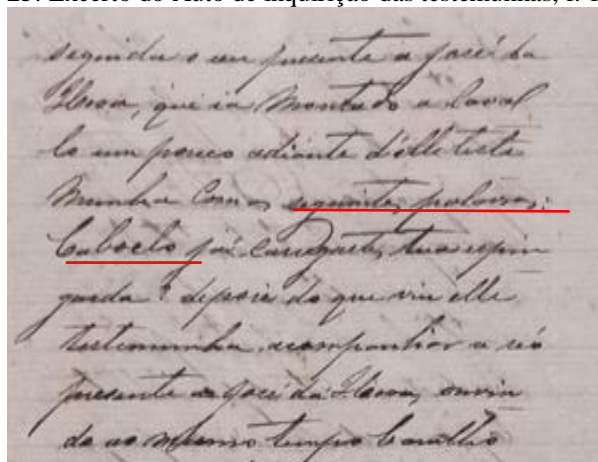 seguida o reu presente a José da
Hora, que ia Montado a Caval
lo um pouco adiante d'elle teste
Munha Com as seguintes palavras:
Caboclo já Carregaste tua espin
garda? depois do que viu elle
testemunha acompanhar o réo
presente a José da Hora, ouvin
do ao mesmo tempo